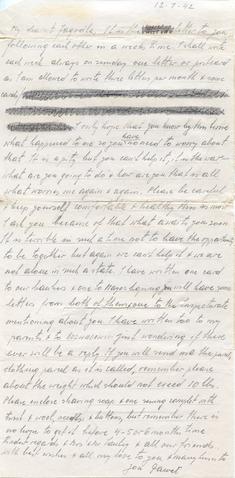 12-7-42
My dearest
following each other in a week time I shall write
each week always on sunday one letter or postcard
as I am allowed to write three letters per month & some
cards
I only hope that you know by this time
what happened to me so you have no need to worry about
that. It is a pity but you can't help it, it is the war
what are you going to do & how are you that is all
what worries me again & again. Please be careful
keep yourself comfortable & healthy this is most
I ask you because of that what awaits you soon
It is terrible in such a time not to have the opportunity
to be together but again we can't help it & we are
not alone in such a state. I have written one card
to our bankers & one to Major having you will have some
letters from both of them one to the
mentioning about you I have written too to my
parents & to just wondering if there
ever will be a reply. If you will send me the parcel,
clothing parcel as it is called, remember please
about the weight what should not exceed 10 lbs.
Please enclose shaving soap & one sewing complet with
& wool, needles & buttons, but remember there is
no hope to get it before 4-5 or 6 months time
Kindest regards & family & all our friends.
with best wishes & all my love to you & many